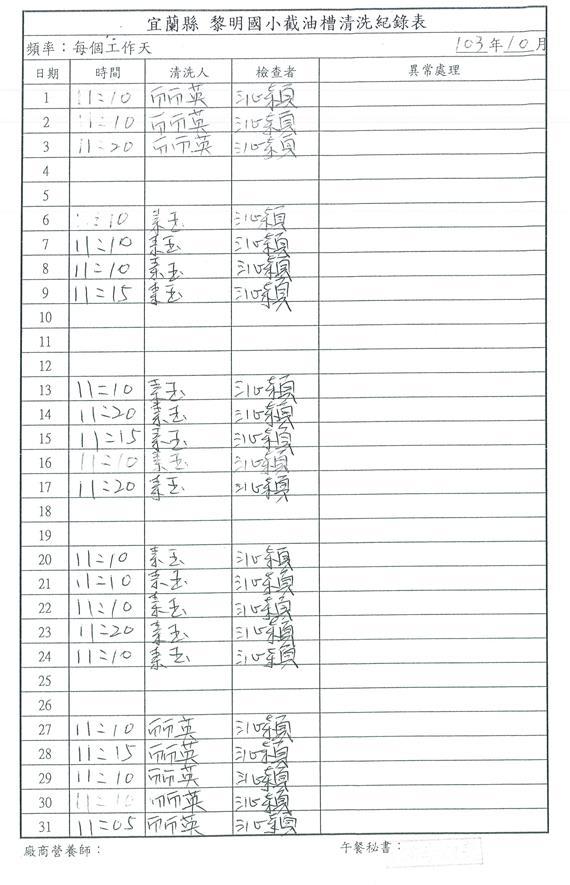 宜蘭縣 黎明國小截油槽清洗紀錄表
頻率：每個工作天 103年10月
日期 時間 清洗人 檢查者 異常處理
1 11:10 丽英 沁穎
2 11:10 丽英 沁穎
3 11:20 丽英 沁穎
4
5
6 :10 素玉 沁穎
7 11:10 素玉 沁穎
8 11:10 素玉 沁穎
9 11:15 素玉 沁穎
10
11
12
13 11:10 素玉 沁穎
14 11:20 素玉 沁穎
15 11:15 素玉 沁穎
16 11:10 素玉 沁穎
17 11:20 素玉 沁穎
18
19
20 11:10 素玉 沁穎
21 11:10 素玉 沁穎
22 11:10 素玉 沁穎
23 11:20 素玉 沁穎
24 11:10 素玉 沁穎
25
26
27 11:10 丽英 沁穎
28 11:15 丽英 沁穎
29 11:10 丽英 沁穎
30 11:10 丽英 沁穎
31 11:05 丽英 沁穎
廠商營養師： 午餐秘書：